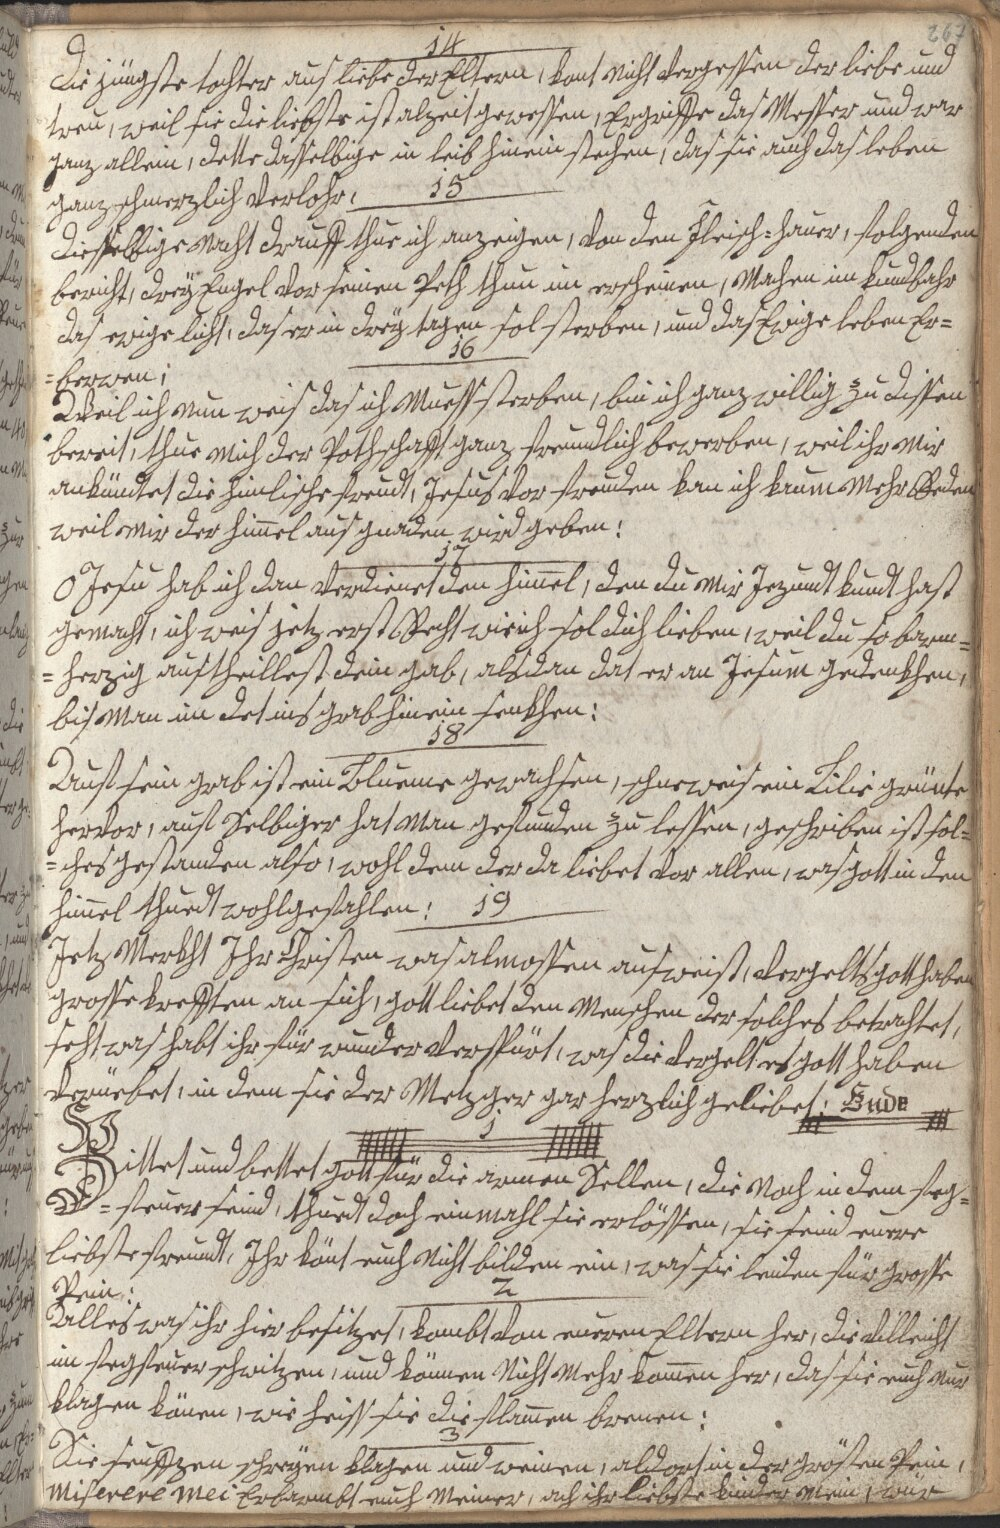 267
14
die jüngste tochter aus liebe der Eltern, kont nicht vergessen der liebe und
treu, weil sie die liebste ist alzeit gewessen, Ergriffe das Messer und war
ganz allein, dette dasselbige in leib hinein stechen, das sie auch das leben
ganz schmerzlich Verlohr,
15
diesselbige Nacht drauff thue ich anzeigen, von den Fleisch=hauer, folgenden
bericht, dreÿ Engel vor seinen Peth thun im erscheinen, Machen im kundbahr
das ewige licht, das er in dreÿ tagen sol sterben, und das Ewige leben Er=
=berwen;
16
Weil ich nun weis das ich Muess sterben, bin ich ganz willig zu dissen
bereit, thue mich der Pothschafft ganz freundlich bewerben, weil ihr mir
ankündtet die himlische freudt, Jesus vor freuden kan ich kaum Mehr Reden
weil mir der him̄el aus gnaden wird geben:
17
O Jesu hab ich dan verdienet den him̄el, den du mir Jezundt kundt hast
gemacht, ich weis jetz erst Recht wie ich sol dich lieben, weil du so barm=
=herzig austheillest dein gab, alsdan dat er an Jesum gedenkhen,
bis Man im det ins grab hinein senkhen:
18
Aus sein grab ist ein Blueme gewachsen, schneweis ein Lilie grünte
hervor, auf Selbiger hat man gefunden zu lessen, geschriben ist sol=
=ches gestanden also, wohl dem der da liebet vor allen, was gott in den
him̄el thuedt wohlgefahlen:
19
Jetz Merkht Ihr Christen was almossen aufweist, vergelts gott haben
grosse krefften an sich, gott liebet den Menschen der solches betrachtet,
seht was habt ihr für wunder verspürt, was die vergelt es gott haben
verüebet, in dem sie der Metzger gar herzlich geliebet: Ende
1
Bittet und bettet gott für die armen Sellen, die noch in dem feg=
=feuer seind, thuedt doch ein mahl sie erlössen, sie seind euere
liebste freundt, Ihr könt euch nicht bilden ein, was sie leiden für grosse
Pein:
2
Alles was ihr hier besitzet, kombt von eueren Eltern her, die villeicht
im fegfeuer schwitzen, und können nicht mehr kom̄en her, das sie euch nur
klagen könen, wie heiss sie die flam̄en brenen:
3
Sie seuffzen schreÿen klagen und weinen, aldort in der grösten Pein,
Miserere Mei Erbarmbt euch Meiner, ach ihr liebste kinder mein, wür